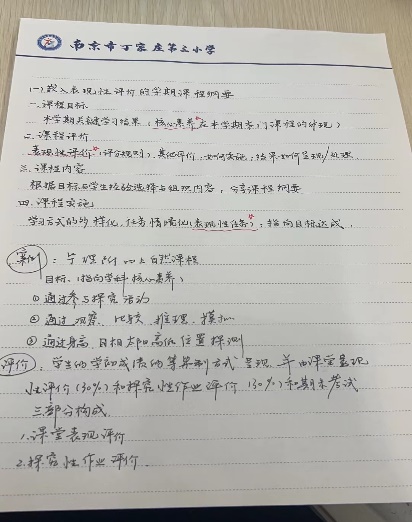 南京市丁家庄第二小学
(一)嵌入表现性评价的学期课程纲要
一.课程目标
本学期关键学习结果（核心素养在本学期本门课程的体现）
二.课程评价
表现性评价（评分规则），其他评价，如何实施，结果如何呈现/处理
三.课程内容
根据目标与学生经验选择与组织内容，分享课程纲要
四.课程实施
学习方式的多样化，任务情境化（表现性任务），指向目标达成.
案例：
自然课程
目标.（指向学科核心素养）
①通过参与探究活动
②通过观察、比较、推理、模拟
③通过 太阳高低位置探测
评价：学生的学期成绩的等第制方式呈现，并由课堂表现
性评价（30%）和探究性作业评价（30%）和期末考试
三部分构成.
1.课堂表现评价
2.探究性作业评价.